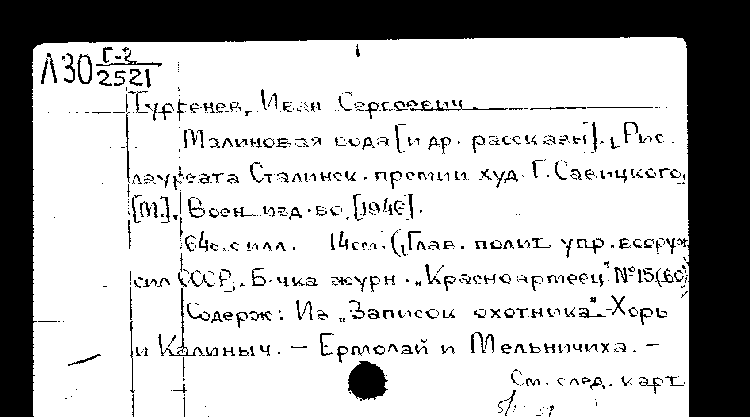 Л30 Г-2/2521
Тургенев, Иван Сергеевич.
Малиновая вода [и др. рассказы]. Рис.
лауреата Сталинск. премии худ. Г. Савицкого.
[М.], Воен. изд-во, [1946].
64 с. с илл. 14 см. (Глав. полит. упр. вооруж.
сил СССР. Б-чка журн. „Красноармеец" № 15 (60)
Содерж: Из „Записок охотника". Хорь
и Калиныч. – Ермолай и Мельничиха. –
См. след. карт.